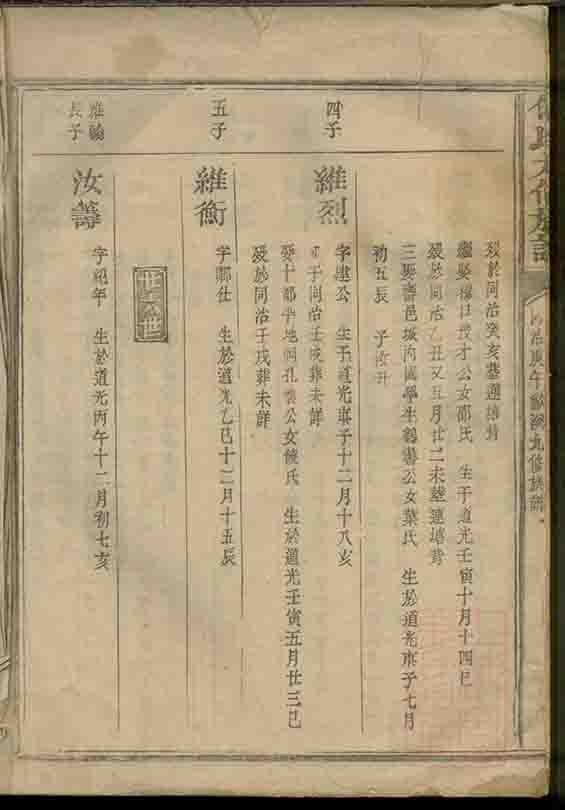 歿於同治癸亥葬蓮塘背
繼娶橫口茂才公女鄒氏 生于道光壬寅十月十四巳
歿於同治乙丑又五月廿二未塟蓮塘背
三娶壽邑城內國學生鶴書公女葉氏 生於道光庚子七月
初五辰 子汝升
四子
維烈
字建公 生于道光庚子十二月十八亥
于同治壬戌葬未詳
娶十都半地孔公女饒氏 生於道光壬寅五月廿三巳
歿於同治壬戌葬未詳
五子
維衡
字仕 生於道光乙巳十二月十五辰
世
維翰長子
汝籌
字年 生於道光丙午十二月初七亥